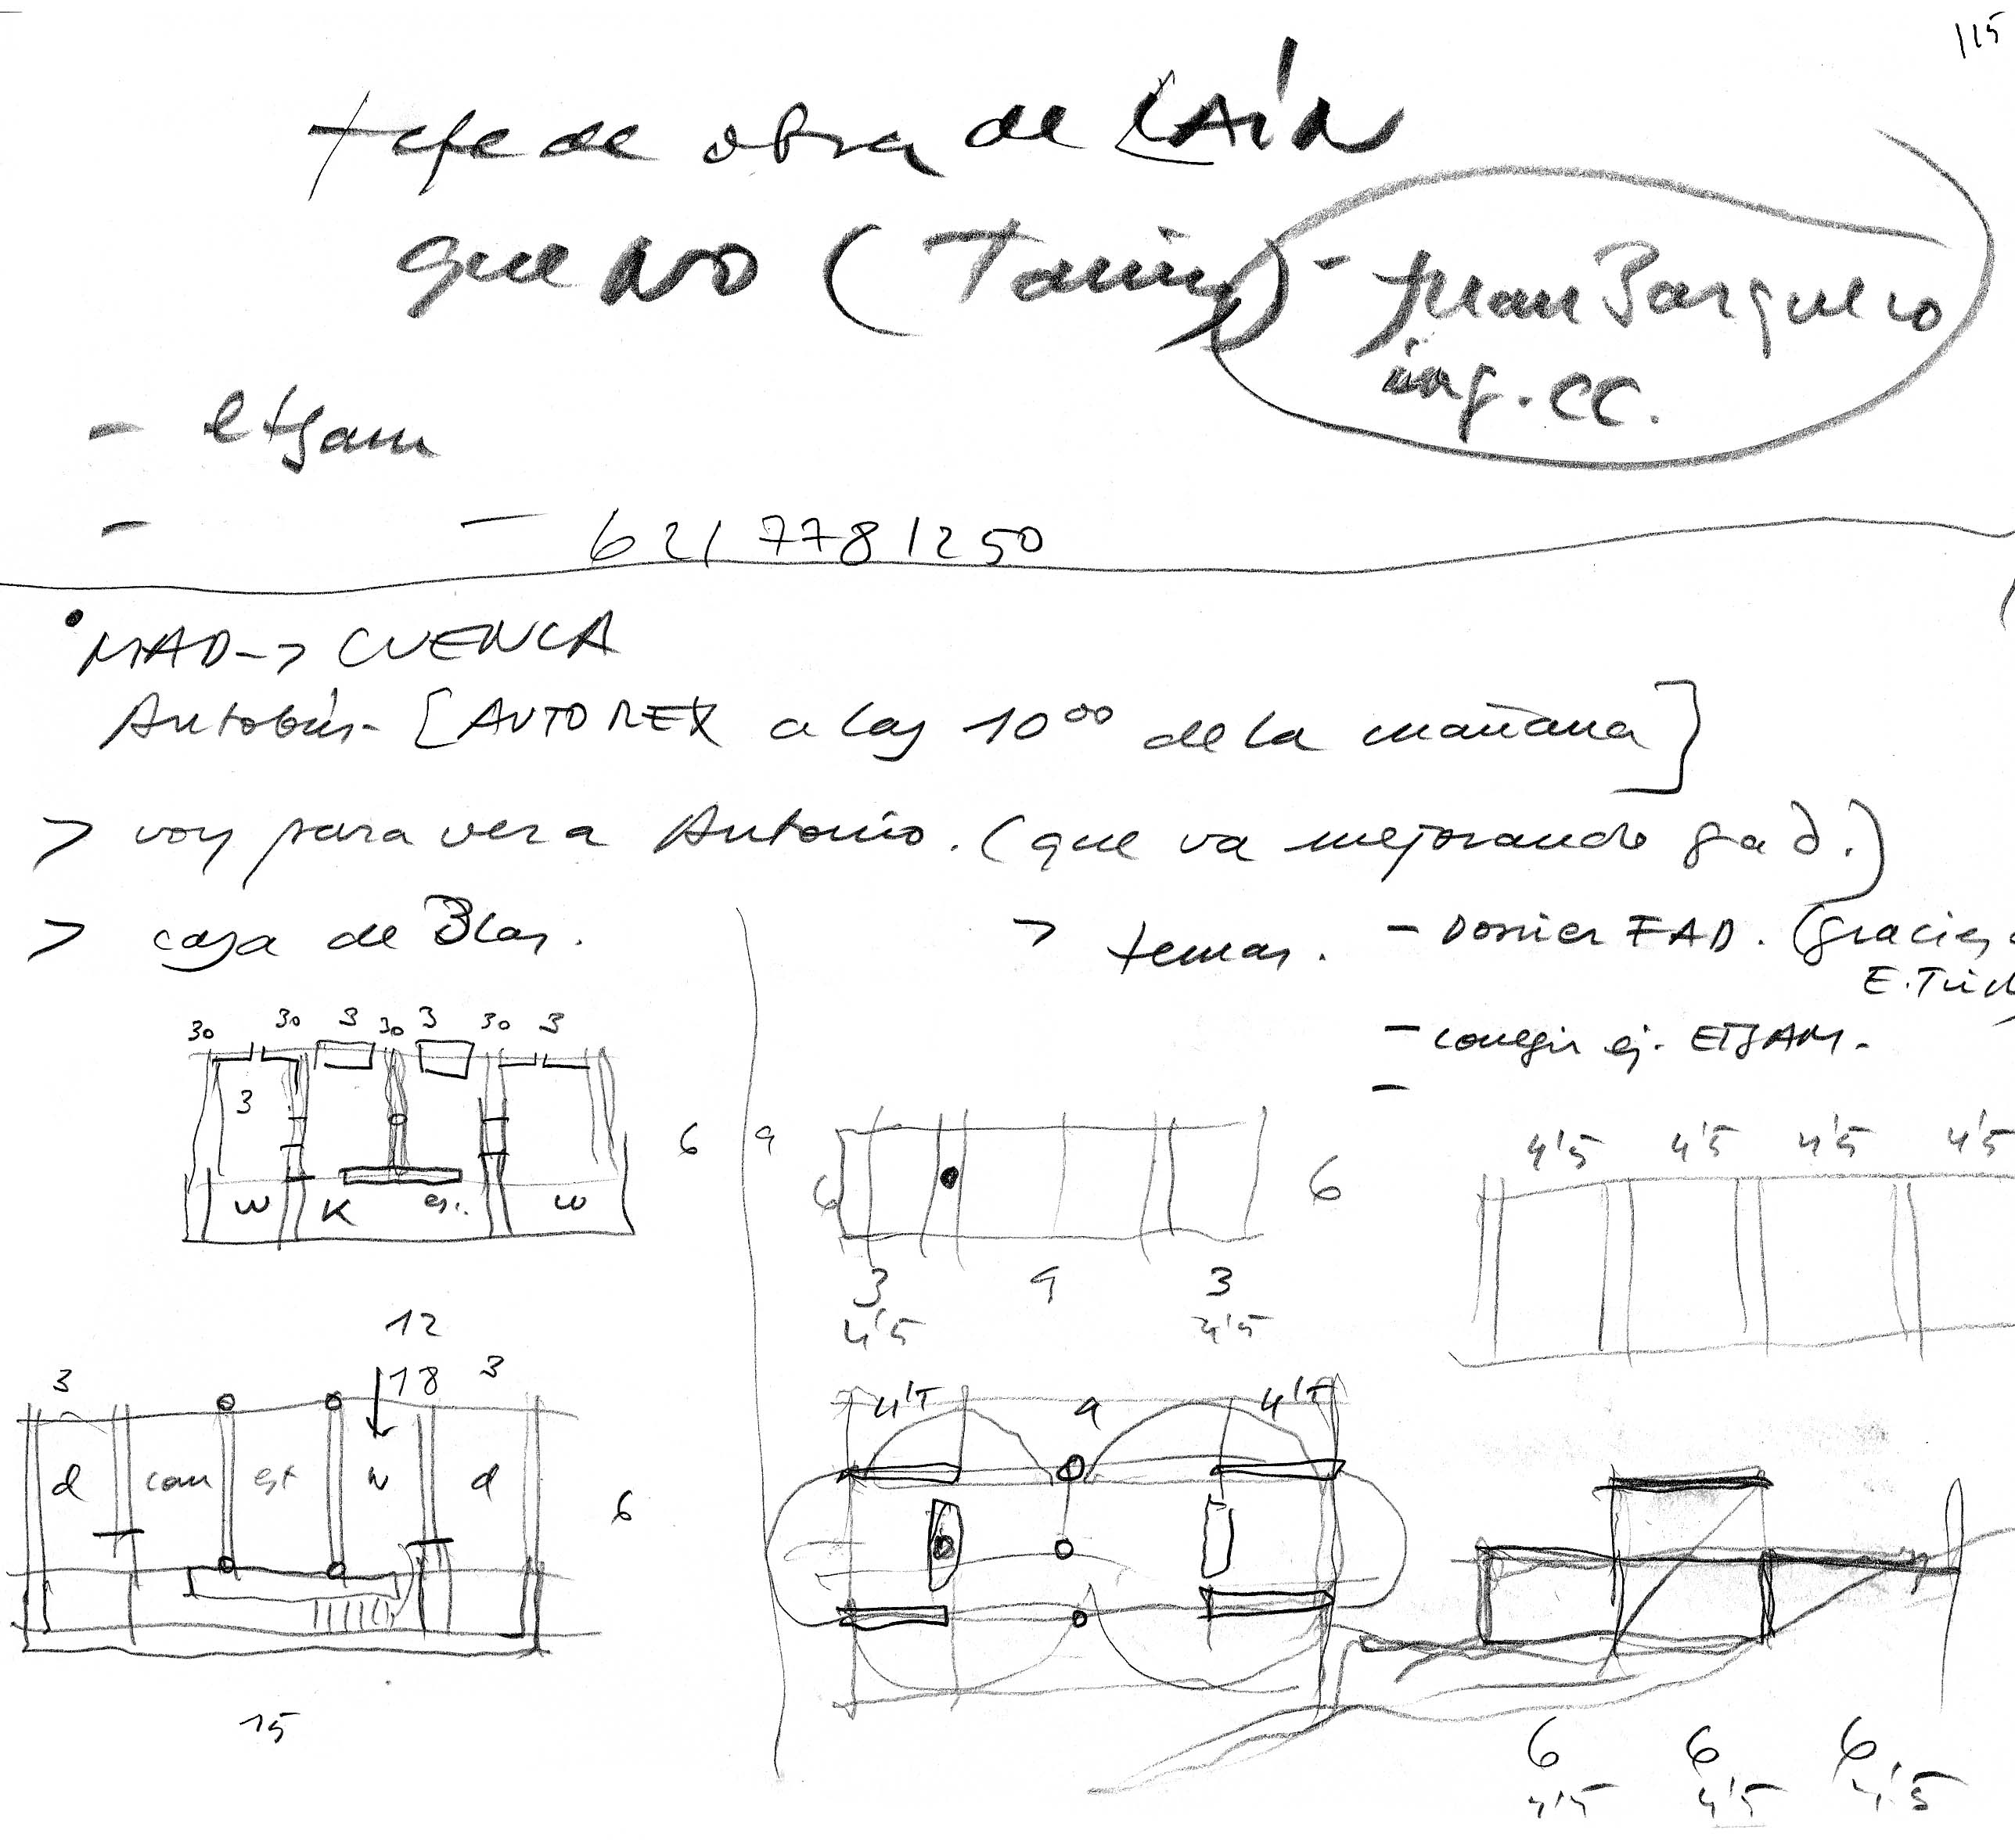 115
Jefe de obra de LAÍN
que NO ( - Juan Barquero
ing. CC.
- etsam
- - 6217781250
• MAD -> CUENCA
Autobús - [AUTO REX a las 10 00 de la mañana]
> voy para ver a Antonio. (que va mejorando g a d.)
> casa de Blas.
> temas. - Dossier FAD. (gracias
E.
- corregir ej. ETSAM.
-
30 30 3 30 3 30 3
3
6
w K es. w
12
9
6 6
3 9 3
4'5 4'5
4'5 4'5 4'5 4'5
3 18 3
d com est w d
6
15
4'5 9 4'5
6 6 6
4'5 4'5 4'5